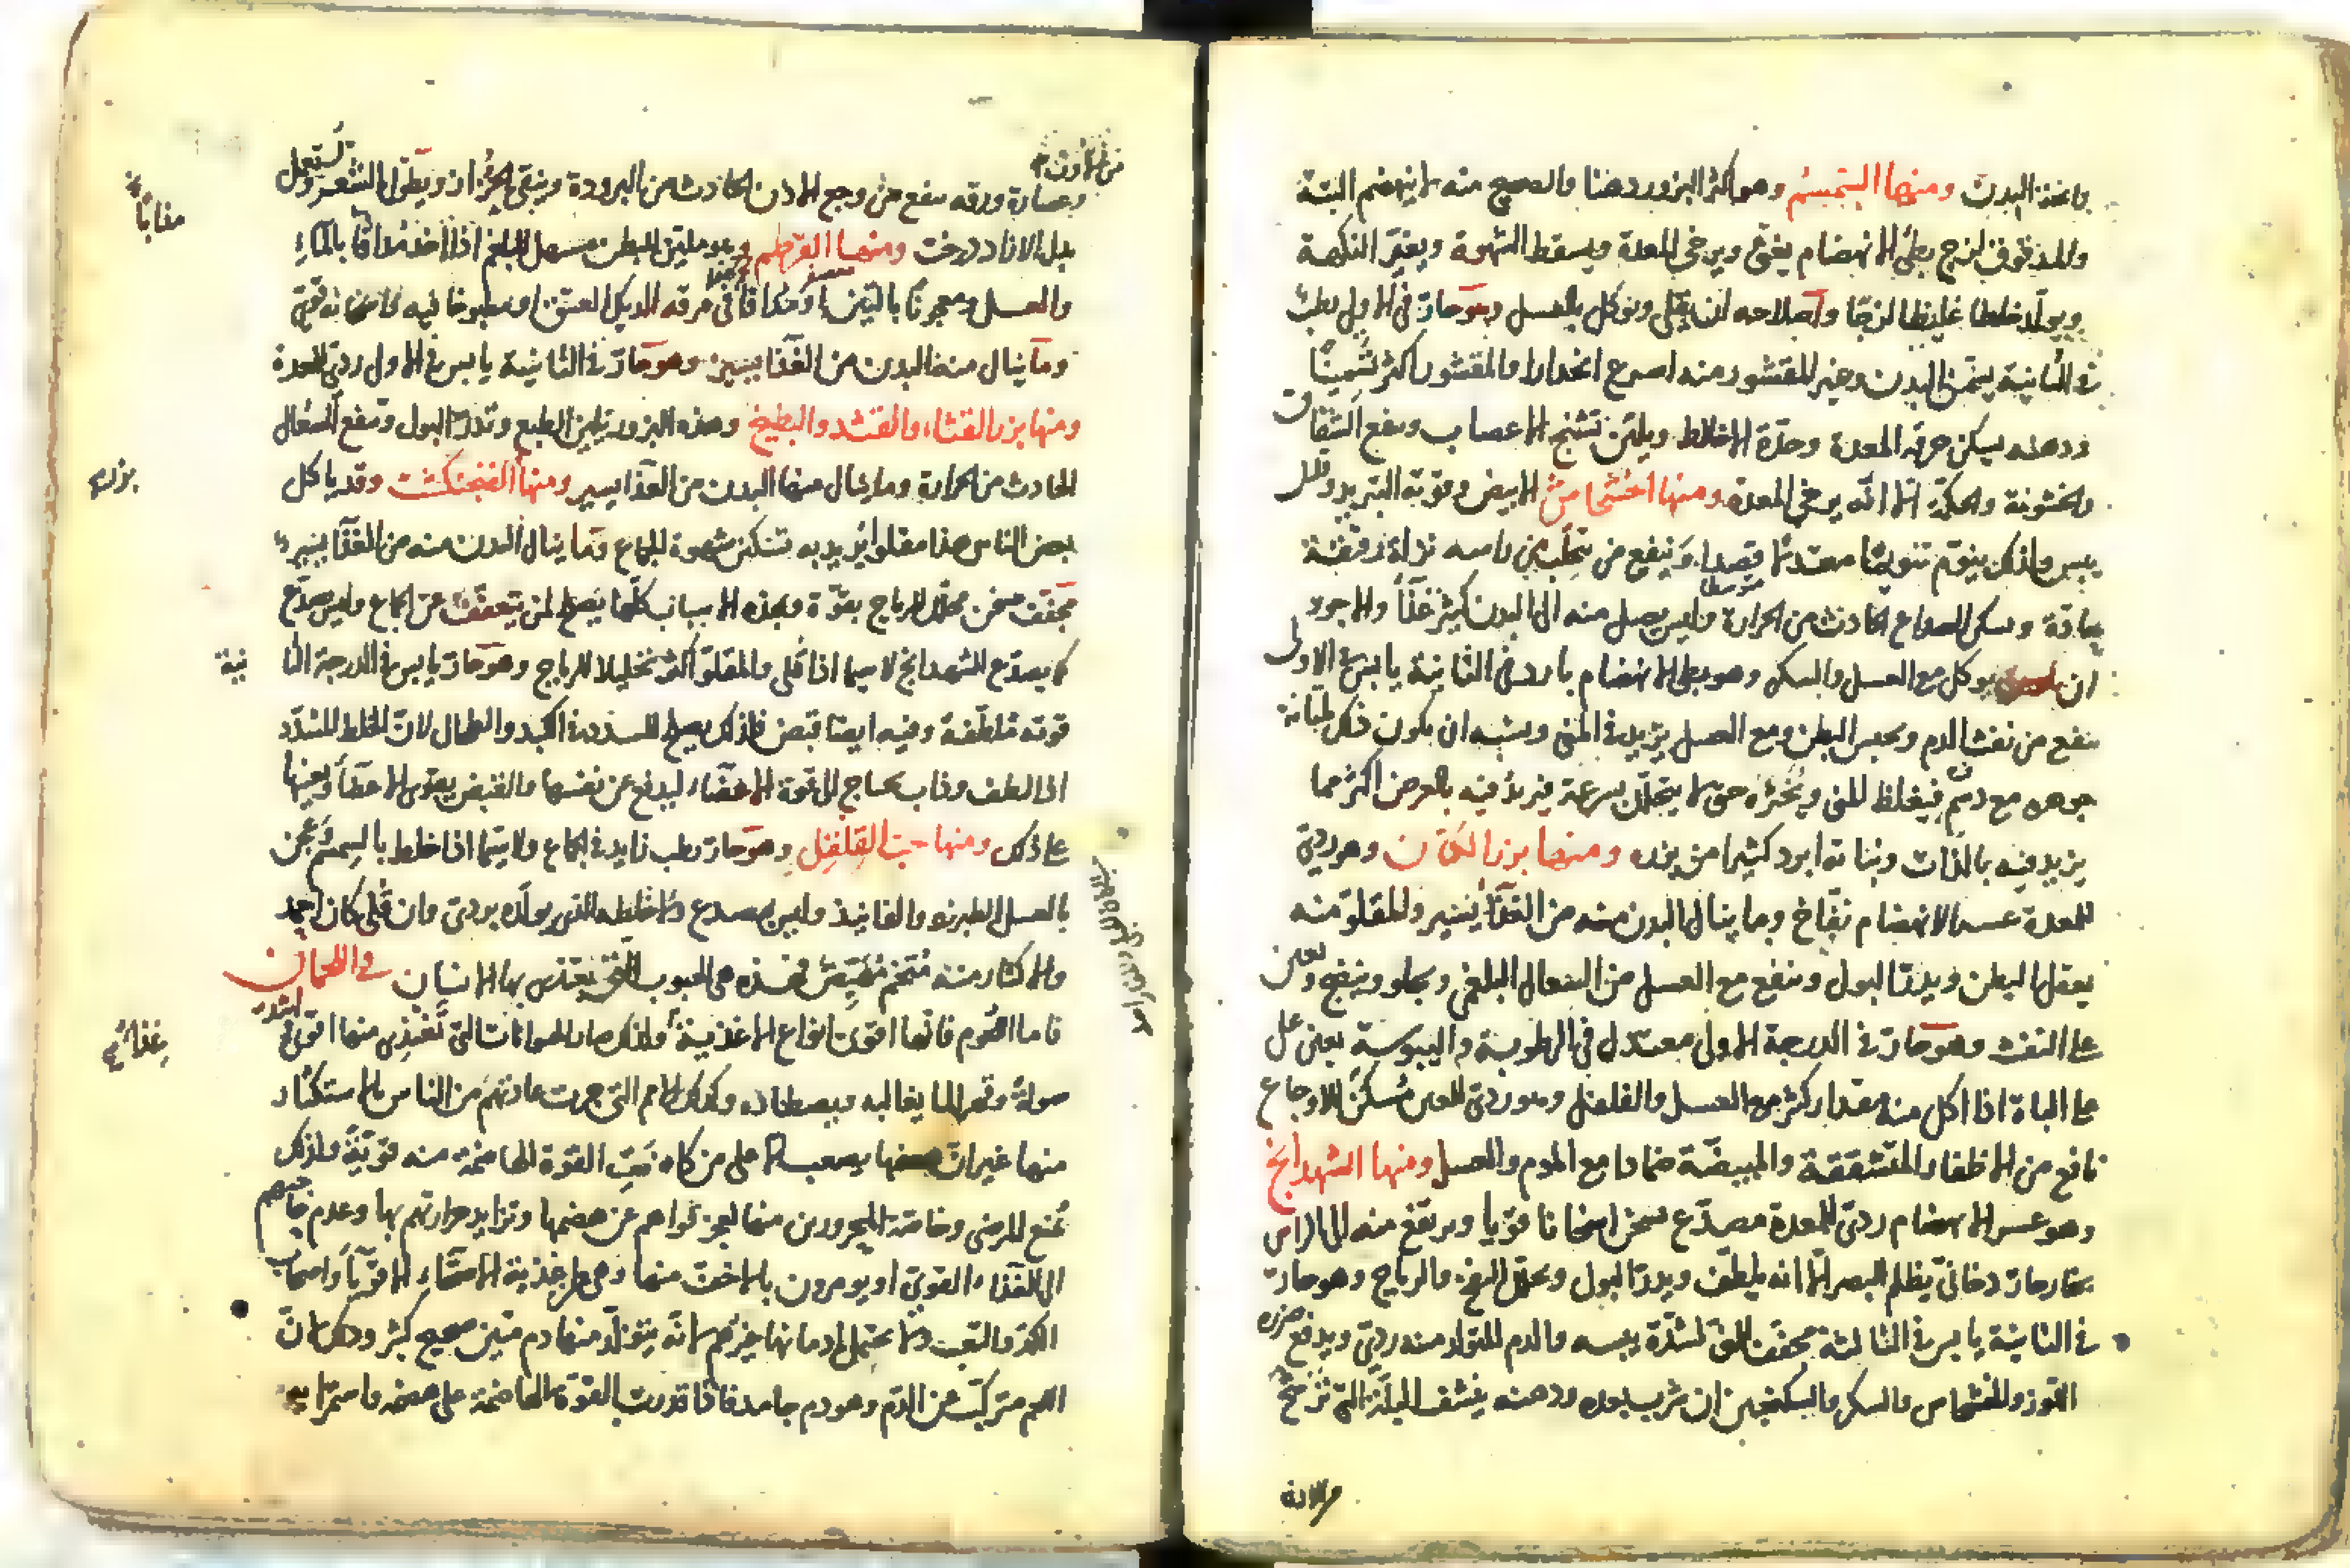 ومنها السمسم وهو اكثر البزور دهنا والصحيح منه لا ينهضم البتة
والمدقوق لزج بطئ الانهضام يغثى ويرخى المعدة ويسقط الشهوة ويغير النكهة
ويولد خلطا غليظا لزجا واصلاحه ان يقلى ويوكل بالعسل وهو حار فى الاولى رطب
فى الثانية يسخن البدن وخير المقشور منه اسرع انحدارا والمقشور اكثر تسمينا
ودهنه يسكن حرقة المعدة وحدة الاخلاط ويلين تشنج الاعصاب وينفع الشقاق
والخشونة والحكة الا انه يرخى المعدة ومنها الخشخاش الابيض وقوته التبريد وقلل
يبس ولذلك ينوم تنويما معتدلا قصدا وينفع من يتحلب من راسه نزلة رقيقة
ويسكن الصداع الحادث من الحرارة وليس يصل منه الى البدن كثير غذا والاجود
ان يوكل مع العسل والسكر وهو بطئ الانهضام بارد فى الثانية يابس فى الاولى
ينفع من نفث الدم ويحبس البطن ومع العسل يزيد فى المنى ويشبه ان يكون ذلك لمتانة
جوهره مع دسم فيغلظ المنى ويخثره حتى لا يتحلل بسرعة فيزيد فيه بالعرض اكثر مما
يزيد فيه بالذات ونباته ابرد كثيرا من بزره ومنها بزر الكتان وهو ردى
للمعدة عسر الانهضام نفاخ وما ينال البدن منه من الغذا يسير والمقلو منه
يعقل البطن ويدر البول وينفع مع العسل من السعال البلغمى ويجلو وينضج ويعين
على النفث وهو حار فى الدرجة الاولى معتدل فى الرطوبة واليبوسة يعين على
الباه اذا اكل منه مقدار كثير مع العسل والفلفل وهو ردى للعين مسكن للاوجاع
نافع من الاظفار المتشققة والمبيضة ضمادا مع الموم والعسل ومنها الشهدانج
وهو عسر الانهضام ردى للمعدة مصدع يسخن اسخانا قويا ويرتفع منه الى الراس
بخار حار دخانى يظلم البصر الا انه يلطف ويدر البول ويحلل النفخ والرياح وهو حار
فى الثانية يابس فى الثالثة يجفف المنى لشدة يبسه والدم المتولد منه ردى ويدفع ضرره
اللوز والخشخاش والسكر والسكنجبين ان شرب بعده ودهنه ينشف البلة التى
وعصارة ورقه ينفع من وجع الاذن الحادث من البرودة وينقى الحزاز ويطول الشعر ويستعمل
بدل الازاددرخت ومنها القرطم وهو ملين للبطن مسهل للبلغم اذا اخذ مدافا بالماء
والعسل ومعجونا بالتين او مدافا فى مرقة الديك العتيق او مطبوخا فيه
وما ينال منه البدن من الغذا يسير وهو حار فى الثانية يابس فى الاولى ردى للمعدة
ومنها بزر القثاء والقثد والبطيخ وهذه البزور تلين الطبع وتدر البول وتنفع السعال
الحادث من الحرارة وما ينال منها البدن من الغذا يسير ومنها الفنجنكشت وقد ياكل
بعض الناس هذا مقلوا يريد به تسكين شهوة الجماع وما ينال البدن منه من الغذا يسير
مجفف مسخن محلل للرياح بقوة وبهذه الاسباب كلها يصلح لمن يتعفف عن الجماع وليس يصدع
كما يصدع الشهدانج لا سيما اذا قلى والمقلو اكثر تحليلا للرياح وهو حار يابس فى الدرجة الثانية
قوته ملطفة وفيه ايضا قبض فلذلك يصلح للسدد فى الكبد والطحال لان الخلط المسدد
اذا لطف وذاب يحتاج الى قوة الاعضاء ليدفع عن نفسها والقبض يقوى الاعضا ويعينها
على ذلك ومنها حب القلقل وهو حار رطب زايد فى الجماع ولا سيما اذا خلط بالسمسم وعجن
بالعسل الطبرزد والفانيذ وليس يصدع ولا خلطه الذى يولده بردى وان قلى كان احمد
والاكثار منه متخم فهذه هى الحبوب التى يغتذى بها الانسان
فى اللحمان
فاما اللحوم فانها اقوى انواع الاغذية ولذلك صار الحيوانات التى تغتذى منها اقوى واشد
صولة وقهرا لما يغالبه ويصطاده وكذلك الامم التى جرت عادتهم من الناس بالاستكثار
منها غير ان هضمها يصعب الا على من كانت القوة الهاضمة منه قوية ولذلك
تمنع المرضى وخاصة المحرورين منها لعجز قواهم عن هضمها وتزايد حرارتهم بها وعدم حاجتهم
الى الغذاء القوى او يومرون بالاخف منها وهى اغذية الاصحاء الاقويا واصحاب
الكد والتعب ولا يحتمل ادمانها غيرهم لانه يتولد منها دم متين صحيح كثير وذلك لان
اللحم متركب من الدم وهو دم جامد فاذا قدرت القوة الهاضمة على هضمه واستمرايه